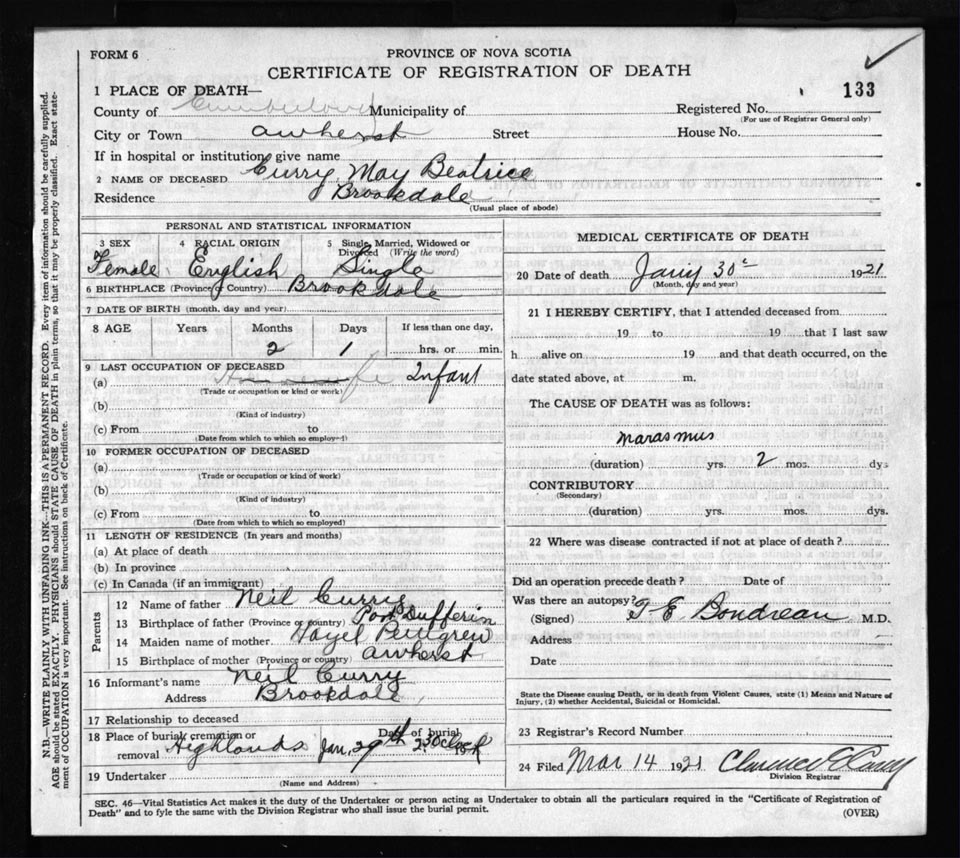 FORM 6
PROVINCE OF NOVA SCOTIA
CERTIFICATE OF REGISTRATION OF DEATH
133
1 PLACE OF DEATH—
County of Cumberland Municipality of
Registered No.
(For use of Registrar General only)
City or Town Amherst Street
House No.
If in hospital or institution, give name
2 NAME OF DECEASED Curry May Beatrice
Residence Brookdale
(Usual place of abode)
PERSONAL AND STATISTICAL INFORMATION
3 SEX 4 RACIAL ORIGIN 5 Single, Married, Widowed or Divorced (Write the word)
Female English Single
6 BIRTHPLACE (Province or Country) Brookdale
7 DATE OF BIRTH (month, day and year)
8 AGE Years Months Days If less than one day,
2 1 hrs. or min.
9 LAST OCCUPATION OF DECEASED
(a) Infant
(Trade or occupation or kind or work)
(b)
(Kind of industry)
(c) From to
(Date from which to which so employed)
10 FORMER OCCUPATION OF DECEASED
(a)
(Trade or occupation or kind of work)
(b)
(Kind of industry)
(c) From to
(Date from which to which so employed)
11 LENGTH OF RESIDENCE (In years and months)
(a) At place of death
(b) In province
(c) In Canada (if an immigrant)
Parents
12 Name of father Neil Curry
13 Birthplace of father (Province or country) Port Dufferin
14 Maiden name of mother Hazel
15 Birthplace of mother (Province or country) Amherst
16 Informant's name Neil Curry
Address Brookdale
17 Relationship to deceased
18 Place of burial, cremation or removal Highlands Date of burial Jan. 29th 2:30 Clock
19 Undertaker
(Name and Address)
MEDICAL CERTIFICATE OF DEATH
20 Date of death Jany 30 1921
(Month, day and year)
21 I HEREBY CERTIFY, that I attended deceased from
19 to 19 that I last saw
h alive on 19 and that death occurred, on the
date stated above, at m.
The CAUSE OF DEATH was as follows:
Marasmus
(duration) yrs. 2 mos. dys
CONTRIBUTORY
(Secondary)
(duration) yrs. mos. dys.
22 Where was disease contracted if not at place of death?
Did an operation precede death? Date of
Was there an autopsy?
(Signed) M.D.
Address
Date
State the Disease causing Death, or in death from Violent Causes, state (1) Means and Nature of
Injury, (2) whether Accidental, Suicidal or Homicidal.
23 Registrar's Record Number
24 Filed Mar 14 1921 Clarence
Division Registrar
SEC. 46—Vital Statistics Act makes it the duty of the Undertaker or person acting as Undertaker to obtain all the particulars required in the "Certificate of Registration of
Death" and to fyle the same with the Division Registrar who shall issue the burial permit.
(OVER)
N.B.—WRITE PLAINLY WITH UNFADING INK—THIS IS A PERMANENT RECORD. Every item of information should be carefully supplied.
AGE should be stated EXACTLY. PHYSICIANS should STATE CAUSE OF DEATH in plain terms, so that it may be properly classified. Exact state-
ment of OCCUPATION is very important. See instructions on back of Certificate.